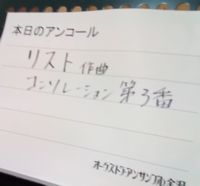 本日のアンコール
リスト 作曲
コンソレーション 第3番
オーケストラ・アンサンブル金沢